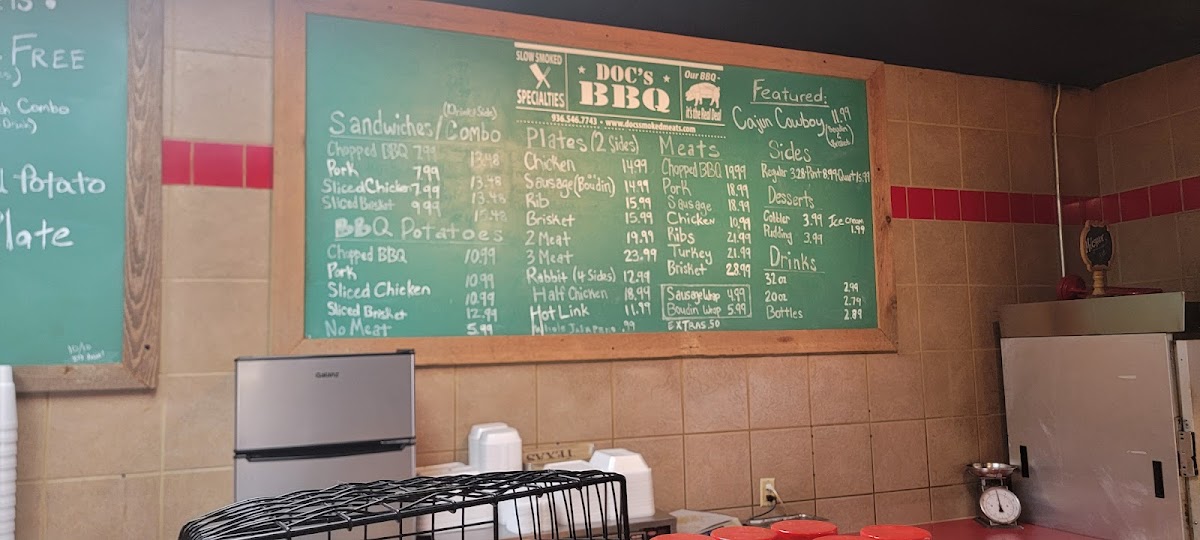 FREE
Combo
Potato
Plate
SLOW SMOKED
SPECIALTIES
DOC'S
BBQ
Our BBQ -
it's the Real Deal
936.546.7743 - www.docssmokedmeats.com
Sandwiches/Combo
(Drink & Side)
Chopped BBQ 7.99 13.48
Pork 7.99 13.48
Sliced Chicken 7.99 13.48
Sliced Brisket 9.99
BBQ Potatoes
Chopped BBQ 10.99
Pork 10.99
Sliced Chicken 10.99
Sliced Brisket 12.99
No Meat 5.99
Plates (2 Sides)
Chicken 14.99
Sausage (Boudin) 14.99
Rib 15.99
Brisket 15.99
2 Meat 19.99
3 Meat 23.99
Rabbit (4 Sides) 12.99
Half Chicken 18.99
Hot Link 11.99
Whole Jalapeno .99
Meats
Chopped BBQ 19.99
Pork 18.99
Sausage 18.99
Chicken 10.99
Ribs 21.99
Turkey 21.99
Brisket 28.99
Sausage Wrap 4.99
Boudin Wrap 5.99
EXTRAS .50
Featured:
Cajun Cowboy 11.99
Sides
Regular 3.28 Pint 8.99 Quart 15.99
Desserts
Cobbler 3.99 Ice Cream 1.99
Pudding 3.99
Drinks
32 oz 2.99
20 oz 2.79
Bottles 2.89
Galanz
TEXAS